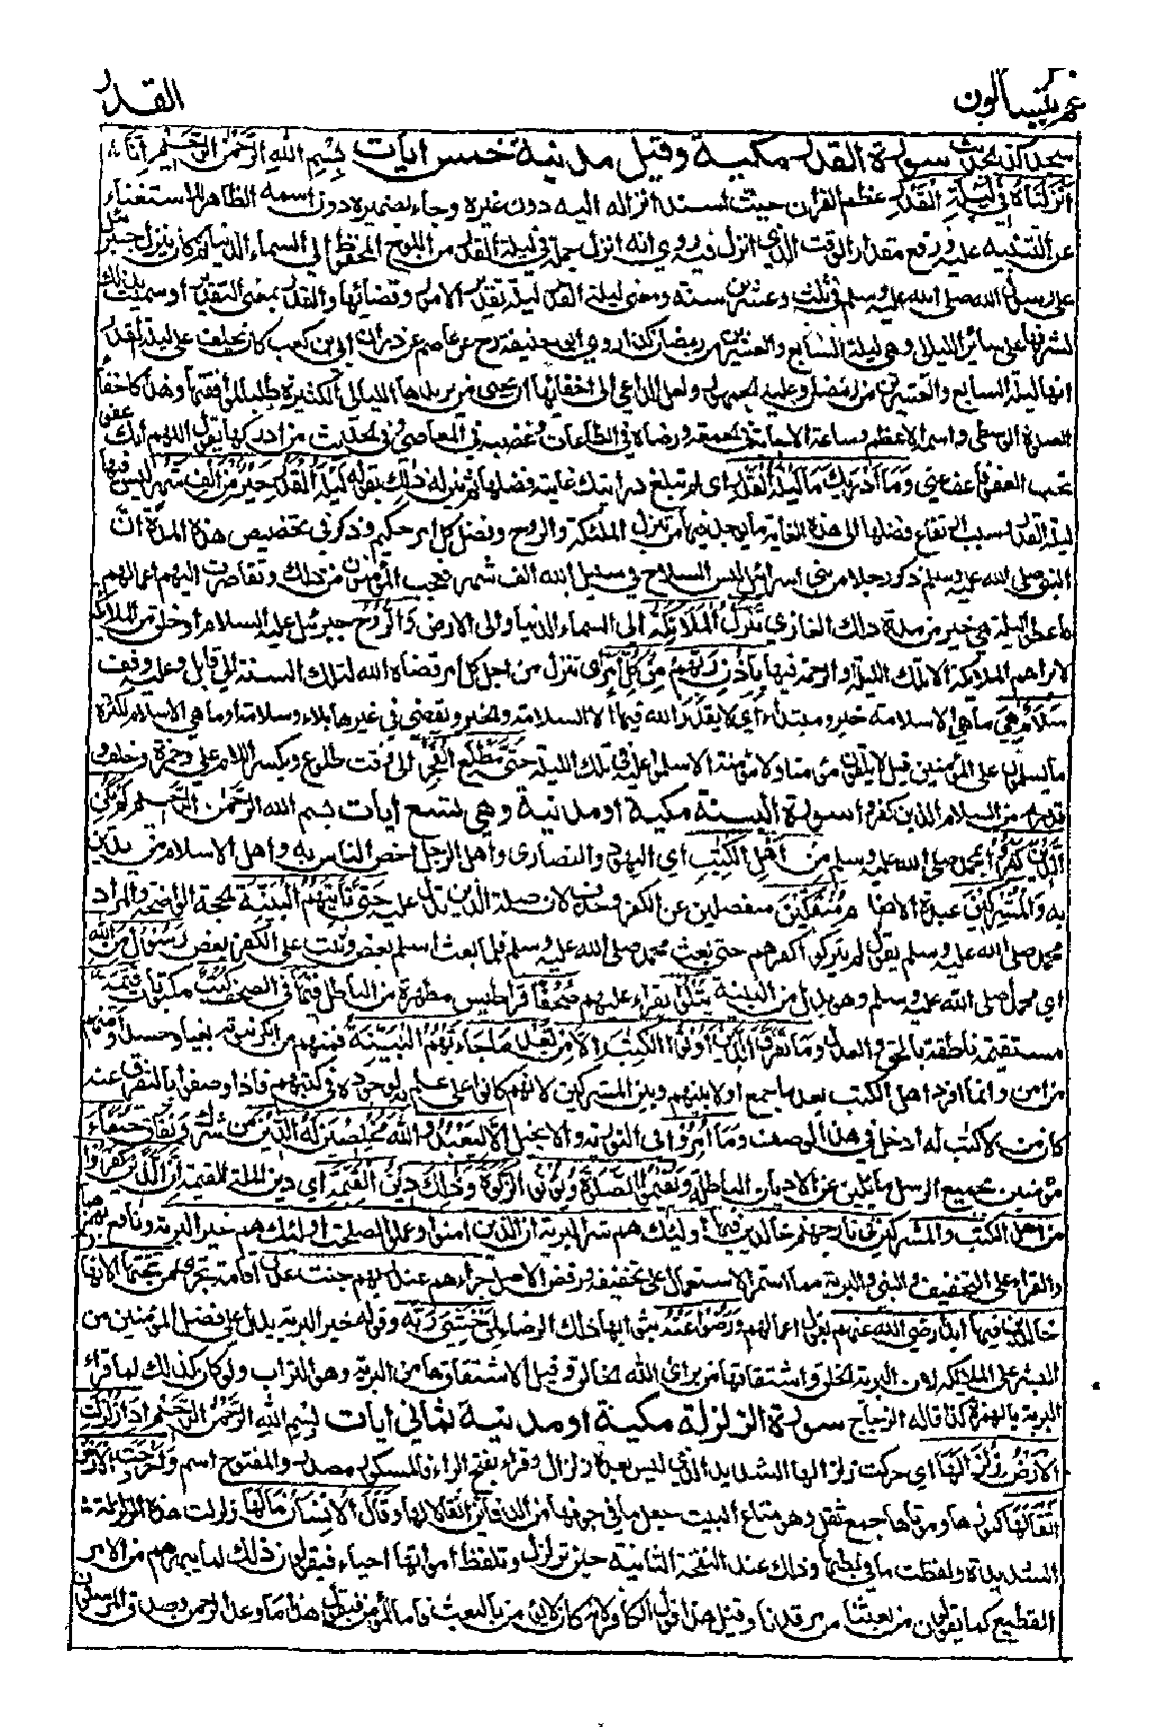 عم يتساءلون
القدر
سورة القدر مكية وقيل مدنية خمس ايات بِسْمِ اللهِ الرَّحْمٰنِ الرَّحِيْمِ اِنَّا
اَنْزَلْنَاهُ فِي لَيْلَةِ الْقَدْرِ عظم القران حيث اسند انزاله اليه دون غيره وجاء بضميره دون اسمه الظاهر للاستغناء
عن التنبيه عليه ورفع مقدار الوقت الذي انزل فيه روي انه انزل جملة في ليلة القدر من اللوح المحفوظ الى السماء الدنيا ثم كان ينزل جبرئيل
على رسول الله صلى الله عليه وسلم في ثلث وعشرين سنة ومعنى ليلة القدر ليلة تقدير الامور وقضائها والقدر بمعنى التقدير او سميت بذلك
لشرفها على سائر الليالي وهي ليلة السابع والعشرين من رمضان كذا روي ابي حنيفة رح عن عاصم عن ذر ان ابي بن كعب كان يحلف على ليلة القدر
انها ليلة السابع والعشرين من رمضان وعليه الجمهور ولعل الداعي الى اخفائها ان يحيى من يريدها الليالي الكثيرة طلبا لموافقتها وهذا كاخفاء
الصلوة الوسطى واسمه الاعظم وساعة الاجابة في الجمعة ورضاه في الطاعات وغضبه في المعاصي وفي الحديث من ادركها يقول اللهم انك عفو
تحب العفو فاعف عني وَمَا اَدْرٰىكَ مَا لَيْلَةُ الْقَدْرِ اي لم تبلغ درايتك غاية فضلها ثم بين له ذلك بقوله لَيْلَةُ الْقَدْرِ خَيْرٌ مِنْ اَلْفِ شَهْرٍ ليس فيها
ليلة القدر وسبب ارتفاع فضلها الى هذه الغاية ما يوجد فيها من تنزل الملئكة والروح وفصل كل امر حكيم وذكر في تخصيص هذه المدة انّ
النبي صلى الله عليه وسلم ذكر رجلا من بني اسرائيل لبس السلاح في سبيل الله الف شهر فعجب المؤمنون من ذلك وتقاصرت اليهم اعمالهم
فاعطوا ليلة هي خير من مدة ذلك الغازي تَنَزَّلُ الْمَلَائِكَةُ الى السماء الدنيا والى الارض وَالرُّوْحُ جبرئيل عليه السلام او خلق من الملائكة
لا يراهم الملائكة الا تلك الليلة او الرحمة فيها بِاِذْنِ رَبِّهِمْ مِنْ كُلِّ اَمْرٍ اي تنزل من اجل كل امر قضاه الله لتلك السنة الى قابل وعليه وقف
سَلَامٌ هِيَ ما هي الا سلامة خبر ومبتداء اي لا يقدر الله فيها الا السلامة والخير ويقضي في غيرها بلاء وسلامة او ما هي الا سلام لكثرة
ما يسلمون على المؤمنين قيل لا يلقون مؤمنا ولا مؤمنة الا سلموا عليه في تلك الليلة حَتّٰى مَطْلَعِ الْفَجْرِ الى وقت طلوع وبكسر اللام علي وحمزة وخلف و
قد من السلام الذين كفروا سورة البينة مكية او مدنية وهي تسع ايات بسم الله الرَّحْمٰنِ الرَّحِيْمِ لَمْ يَكُنِ
الَّذِيْنَ كَفَرُوْا بمحمد صلى الله عليه وسلم مِنْ اَهْلِ الْكِتٰبِ اي اليهود والنصارى واهل الرجل اخص الناس به واهل الاسلام من يدين
به وَالْمُشْرِكِيْنَ عبدة الاصنام مُنْفَكِّيْنَ منفصلين عن الكفر وحذف لان صلة الذين تدل عليه حَتّٰى تَاْتِيَهُمُ الْبَيِّنَةُ الحجة الواضحة والمراد
محمد صلى الله عليه وسلم يقول لم يتركوا كفرهم حتى يبعث محمد صلى الله عليه وسلم فلما بعث اسلم بعض وثبت على الكفر بعض رَسُوْلٌ مِنَ اللهِ
اي محمد صلى الله عليه وسلم وهو بدل من البينة يَتْلُوْا يقراء عليهم صُحُفًا قراطيس مطهرة من الباطل فيها في الصحف كُتُبٌ مكتوبات قَيِّمَةٌ
مستقيمة ناطقة بالحق والعدل وَمَا تَفَرَّقَ الَّذِيْنَ اُوْتُوا الْكِتٰبَ اِلَّا مِنْ بَعْدِ مَا جَاءَتْهُمُ الْبَيِّنَةُ فمنهم من انكر نبوته بغيا وحسدا ومنهم
من امن وانما افرد اهل الكتب بعد ما جمع اولا بينهم وبين المشركين لانهم كانوا على علم به لوجوده في كتبهم فاذا وصفوا بالتفرق عنه
كان من لا كتب له ادخل في هذا الوصف وَمَا اُمِرُوْا في التورٰية والانجيل اِلَّا لِيَعْبُدُوا اللهَ مُخْلِصِيْنَ لَهُ الدِّيْنَ من شرك ونفاق حُنَفَاءَ
مؤمنين بجميع الرسل مائلين عن الاديان الباطلة وَيُقِيْمُوا الصَّلٰوةَ وَيُؤْتُوا الزَّكٰوةَ وَذٰلِكَ دِيْنُ الْقَيِّمَةِ اي دين الملة القيمة اِنَّ الَّذِيْنَ كَفَرُوْا
من اهل الكتب والمشركين في نار جهنم خالدين فيها اولئك هم شر البرية ان الذين امنوا وعملوا الصلحت اولئك هم خير البرية ونافع يهمز
والقراء على التخفيف والنبي والبرية مما استمر الاستعمال على تخفيفه ورفض الاصل جزاءهم عند ربهم جنت عدن اقامة تجري من تحتها الانهار
خالدين فيها ابدا رضي الله عنهم بقبول اعمالهم وَرَضُوْا عَنْهُ بثوابها ذلك الرضاء لِمَنْ خَشِيَ رَبَّهُ وقوله خير البرية يدل على فضل المؤمنين من
البشر على الملائكة لان البرية الخلق واشتقاقها من برأ الله الخلق وقيل اشتقاقها من البرى وهو التراب ولو كان كذلك لما قراء
البرية بالهمزة كذا قاله الزجاج سورة الزلزلة مكية او مدنية ثماني ايات بِسْمِ اللهِ الرَّحْمٰنِ الرَّحِيْمِ اِذَا زُلْزِلَتِ
الْاَرْضُ زِلْزَالَهَا اي حركت زلزالها الشديد الذي ليس بعده زلزال وقراء بفتح الزاء فالمكسور مصدر والمفتوح اسم وَاَخْرَجَتِ الْاَرْضُ
اَثْقَالَهَا كنوزها وموتاها جمع ثقل وهو متاع البيت جعل ما في جوفها من الدفائن اثقالا لها وَقَالَ الْاِنْسَانُ مَالَهَا زلزلت هذه الزلزلة
الشديدة ولفظت ما في بطنها وذلك عند النفخة الثانية حين تزلزل وتلفظ امواتها احياء فيقولون ذلك لما يبهرهم من الامر
الفظيع كما يقولون من بعثنا من مرقدنا وقيل هذا قول الكافر لانه كان لا يؤمن بالبعث فاما المؤمن فيقول هذا ما وعد الرحمن وصدق المرسلون